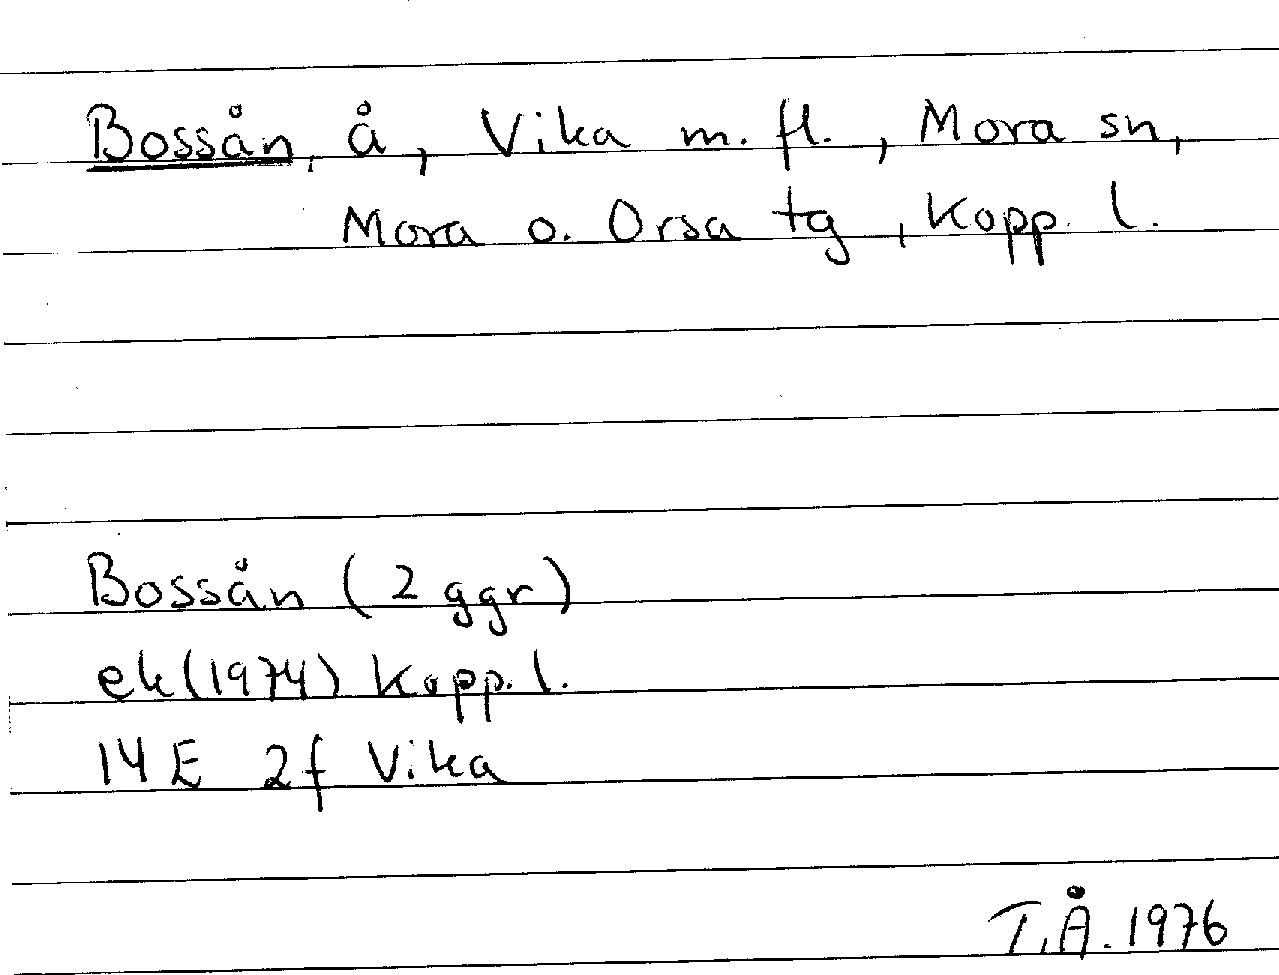 Bossån, å, Vika m. fl., Mora sn,
Mora o. Orsa tg, Kopp. l.
Bossån (2 ggr)
ek (1974) Kopp. l.
14 E 2f Vika
T.Å. 1976